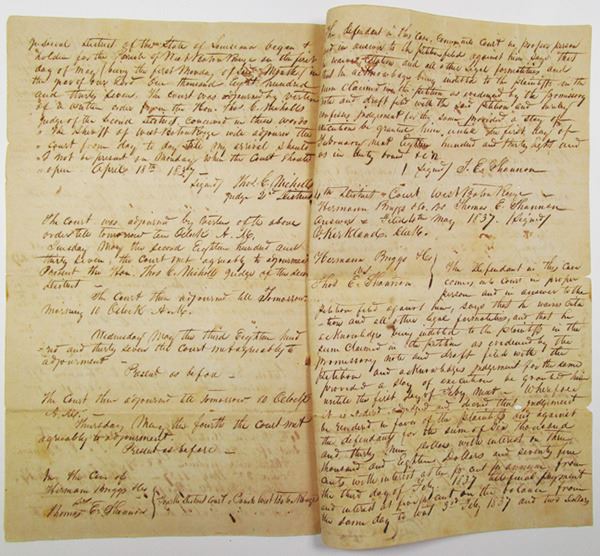 judicial District of the State of Louisiana began &
holden for the Parish of West Baton Rouge on the first
day of May (being the first Monday of said Month) in
the year of our Lord One thousand eight hundred
and thirty seven. The Court was adjourned by virtue
of a written order from the Hon. Thos C. Nicholls
Judge of the Second district. Conceived in these words
The Sheriff of West Baton Rouge will adjourn the
Court from day to day till my arrival should
I not be present on Monday when the Court should
open April 18th 1837
Signed Thos. C. Nicholls
Judge 2d District
The Court was adjourned by virtue of the above
order till tomorrow ten OClock A.M.
Tuesday May the second Eighteen hundred and
thirty seven, the Court met agreeably to adjournment
Present the Hon. Thos C. Nicholls Judge of the second
District
The Court then adjourned till Tomorrow
morning 10 OClock A.M.
Wednesday May the third Eighteen hund
red and thirty seven the Court met agreeably to
adjournment
Present as before
The Court then adjourned till tomorrow 10 OClock
A.M.
Thursday May the fourth the Court met
agreeably to adjournment
Present as before
In the Case of
Hermann Briggs &Co
vs
Thomas E. Shannon
District Court, Parish West Baton Rouge
The defendant in this case, comes into Court in proper person
and in answer to the petition filed against him says that
he waives citation and all other legal formalities and
that he acknowledges being indebted to the plaintiffs in the
sum claimed in the petition as evidenced by the promissory
note and draft filed with the said petition and hereby
confesses judgement for the same provided a stay of
execution be granted him until the first day of
February next Eighteen hundred and thirty eight and
as in duty bound &c
Signed T. E. Shannon
4th District Court West Baton Rouge
Hermann Briggs & Co. vs Thomas E Shannon
Answer Filed 4th May 1837. (Signed)
Kirkland. Clk
Hermann Briggs &Co
vs
Thos E. Shannon
The Defendant in this Case
comes into Court in proper
person and in answer to the
petition filed against him, says that he waives cita
tions and all other legal formalities, and that he
acknowledges being indebted to the plaintiffs in the
sum Claimed in the petition as evidenced by the
promissory note and draft filed with the
petition and acknowledges judgement for the same
provided a stay of execution be granted him
untill the first day of Feby next. Wherefore
it is ordered adjudged and decreed that judgement
be rendered in favor of the plaintiffs and against
the defendant for the sum of Six thousand
and thirty nine dollars with interest on three
thousand and eighteen dollars and seventy five
cents with interest at ten per cent per annum from
the third day of Feby 1837 till final payment
and interest at per cent on the balance from
the same day to wit 3rd Feby 1837 and two dollars